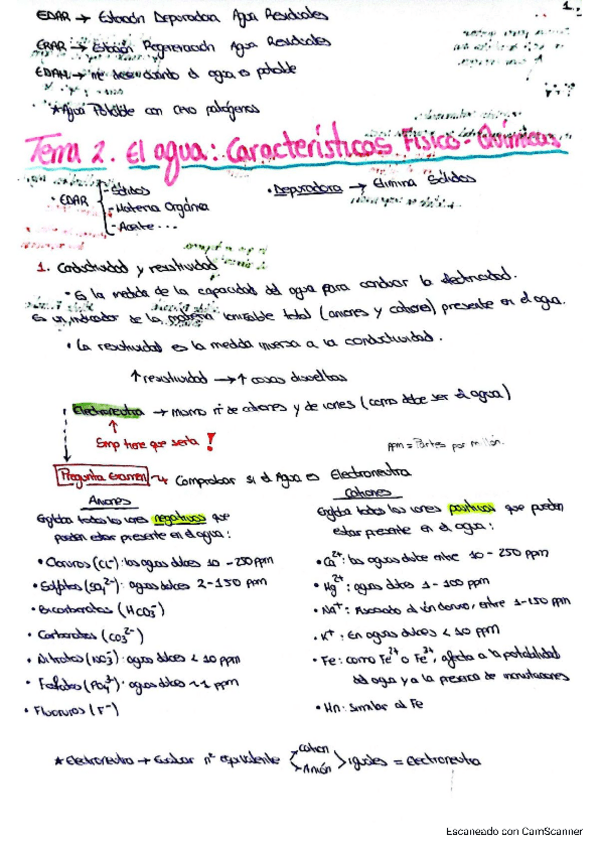 1.
EDAR → Estación Depuradora Agua Residuales
ERAR → Estación Regeneración Agua Residuales
EDAM → agua es potable
*Agua Potable con cero patógenos
Tema 2. El agua: Características Físico-Químicas
• EDAR
- Sólidos
- Materia Orgánica
- Aceite...
• Depuradora → Elimina Sólidos
1. Conductividad y resistividad
• Es la medida de la capacidad del agua para conducir la electricidad.
Es un indicador de la materia ionizable total (aniones y cationes) presente en el agua.
• La resistividad es la medida inversa a la conductividad.
↑ resistividad → ↑ cosas disueltas
Electroneutra → mismo nº de cationes y de iones (como debe ser el agua)
↑
Siemp tiene que serla !
ppm = Partes por millón.
Pregunta Examen → Comprobar si el Agua es Electroneutra
Aniones
Engloba todos los iones negativos que
pueden estar presente en el agua:
• Cloruros (Cl⁻): las aguas dulces 10 - 250 ppm
• Sulfatos (SO₄²⁻): aguas dulces 2-150 ppm
• Bicarbonatos (HCO₃⁻)
• Carbonatos (CO₃²⁻)
• Nitratos (NO₃⁻): aguas dulces < 10 ppm
• Fosfatos (PO₄³⁻): aguas dulces ~1 ppm
• Fluoruros (F⁻)
Cationes
Engloba todos los iones positivos que pueden
estar presente en el agua:
• Ca²⁺: las aguas dulce entre 10 - 250 ppm
• Mg²⁺: aguas dulces 1 - 100 ppm
• Na⁺: Asociado al ión cloruro, entre 1-150 ppm
• K⁺: En aguas dulces < 10 ppm
• Fe: como Fe²⁺ o Fe³⁺, afecta a la potabilidad
del agua y a la presencia de incrustaciones
• Mn: Similar al Fe
* Electroneutra → Evaluar nº equivalente
Catión
Anión
iguales = Electroneutra
Escaneado con CamScanner